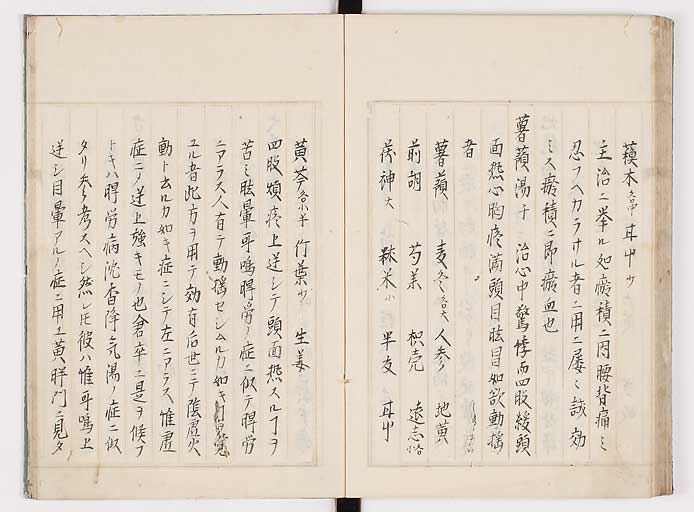 莪朮各中 甘中少
主治ニ挙ル如瘀積ニ因腰背痛ミ
忍フヘカラサル者ニ用ニ屡ミ試効
ミス瘀積ニ即瘀血也
薯蕷湯千 治心中驚悸而四肢緩頭
面熱心胸痰満頭目眩冒如欲動揺
者
薯蕷 麦冬各大 人参 地黄
前胡 芍薬 枳壳 遠志
茯神大 秫米小 半夏 甘中
黄芩各小半 竹葉少 生姜
四肢煩疼上逆シテ頭面熱スルヿヲ
苦ミ眩暈耳鳴肝労ノ症ニ似テ肝労
ニアラス人有テ動揺セシムルカ如キ
ユル者此方ヲ用テ効有后世ニテ陰虚火
動ト云ルカ如キ症ニシテ左ニアラス惟虚
症ニノ逆上強キモノ也倉卒ニ是ヲ候フ
トキハ肝労病沈香降気湯ノ症ニ似
タリ参考スヘシ然レ𪜈彼ハ惟耳鳴上
逆シ目暈アルノ症ニ用ユ黄胖門ニ見タ